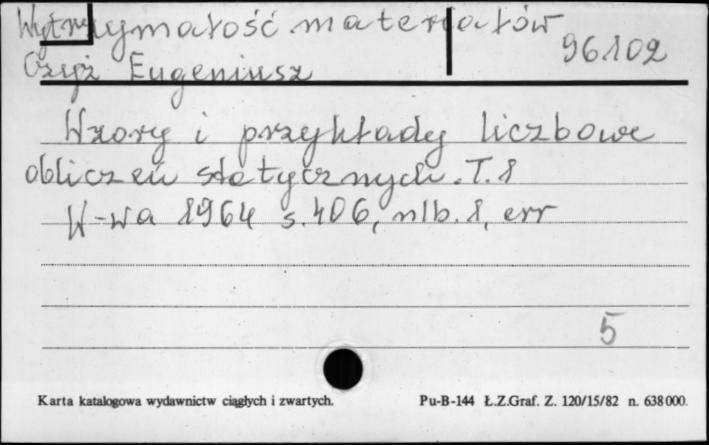 Wytrzymałość materiałów
96.102
Czyż Eugeniusz
Wzory i przykłady liczbowe
obliczeń statycznych. T. 1
W-wa 1964 s. 406, nlb. 1, err
5
Karta katalogowa wydawnictw ciągłych i zwartych.
Pu-B-144 Ł.Z.Graf. Z. 120/15/82 n. 638 000.